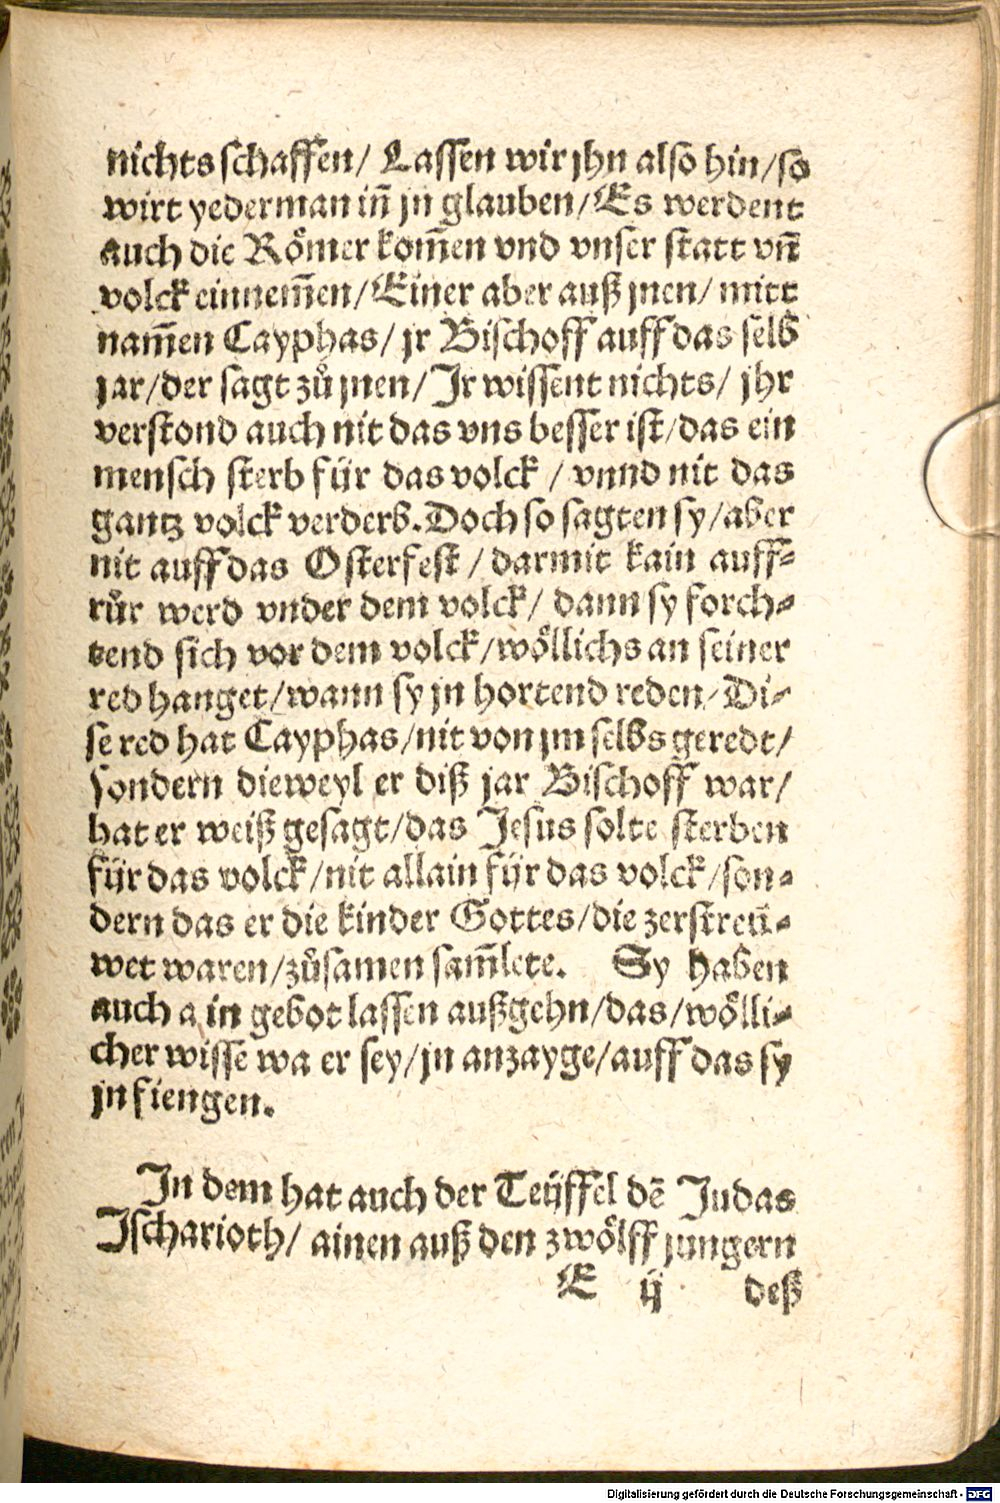 nichts schaffen/ Lassen wir jhn also hin/so
wirt yederman in̄ jn glauben/Es werdent
auch die Roͤmer kom̄en vnd vnser statt vn̄
volck einnem̄en/Einer aber auß jnen/ mitt
nam̄en Cayphas/ jr Bischoff auff das selb
jar/der sagt zuͦ jnen/Jr wissent nichts/ jhr
verstond auch nit das vns besser ist/das ein
mensch sterb für das volck / vnnd nit das
gantz volck verderb. Doch so sagten sy/aber
nit auff das Osterfest / darmit kain auff⸗
ruͦr werd vnder dem volck/ dann sy forch⸗
tend sich vor dem volck/woͤllichs an seiner
red hanget/wann sy jn hortend reden/Di⸗
se red hat Cayphas/nit von jm selbs geredt/
sondern dieweyl er diß jar Bischoff war/
hat er weiß gesagt/das Jesus solte sterben
für das volck/nit allain für das volck/son⸗
dern das er die kinder Gottes/die zerstreü⸗
wet waren/zuͦsamen sam̄lete. Sy haben
auch ain gebot lassen außgehn/das/woͤlli⸗
cher wisse wa er sey/jn anzayge/auff das sy
jn fiengen.
Jn dem hat auch der Teüffel dē Judas
Jscharioth/ ainen auß den zwoͤlff jungern
E ij deß
Digitalisierung gefördert durch die Deutsche Forschungsgemeinschaft - DFG